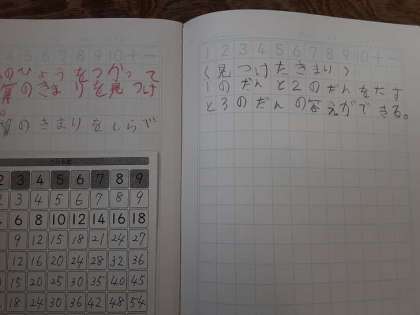 5 6 7 8 9 10 + −
のひょうをつかって
算のきまりを見つけ
算のきまりをしらべ
2 3 4 5 6 7 8 9
2 3 4 5 6 7 8 9
4 6 8 10 12 14 16 18
9 12 15 18 21 24 27
12 16 20 24 28 32 36
15 20 25 30 35 40 45
18 24 30 36 42 48 54
1 2 3 4 5 6 7 8 9 10 + −
(見つけたきまり)
1のだんと2のだんをたす
と3のだんの答えができる。